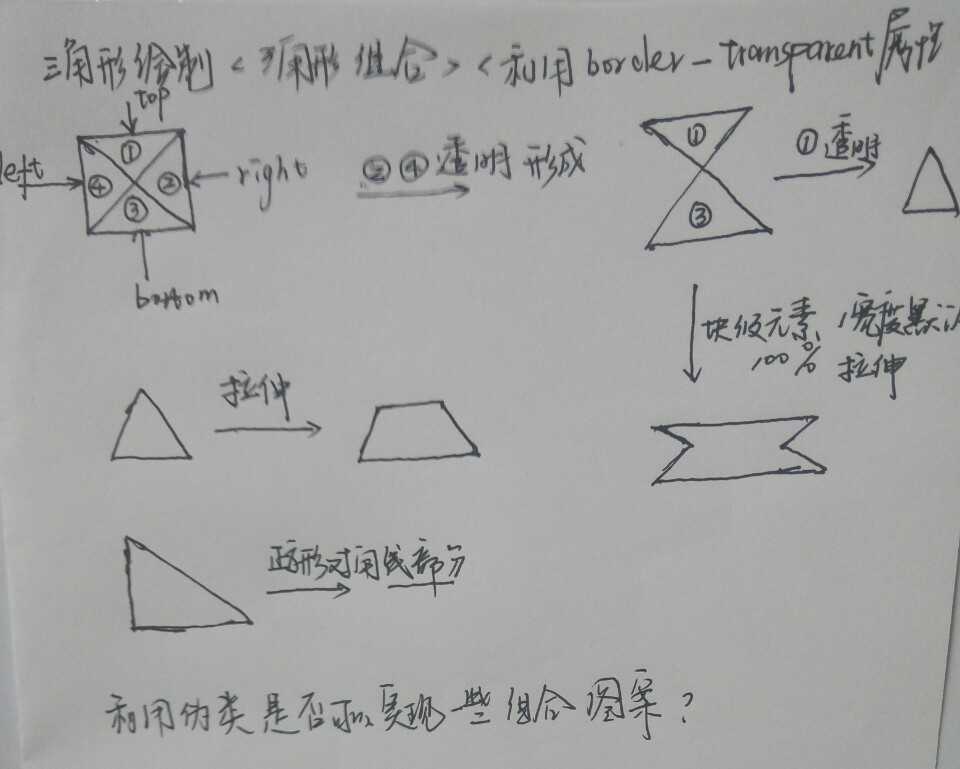 三角形绘制<三角形组合><利用border-transparent属性
top
left ① ② ③ ④ right
bottom
②④透明形成
① ③
①透明
块级元素,宽度默认
100% 拉伸
拉伸
正方形对角线部分
利用伪类是否可以实现一些组合图案?